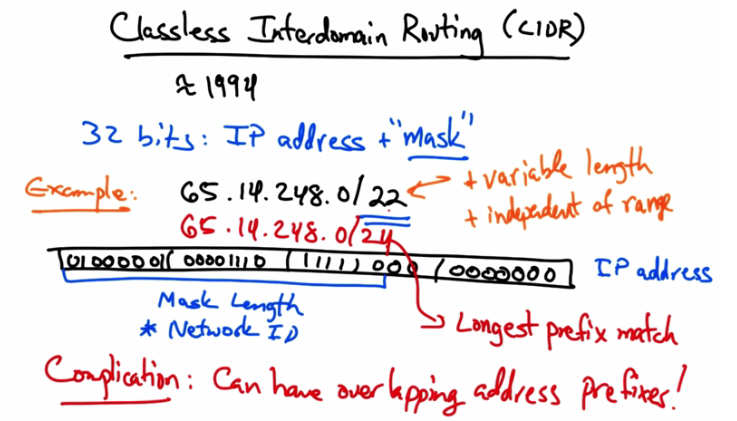 Classless Interdomain Routing (CIDR)
≈ 1994
32 bits: IP address + "mask"
Example: 65.14.248.0/22
+ variable length
+ independent of range
65.14.248.0/24
01000001 00001110 11111000 0000000 IP address
Mask Length
* Network ID
Longest prefix match
Complication: Can have overlapping address prefixes!